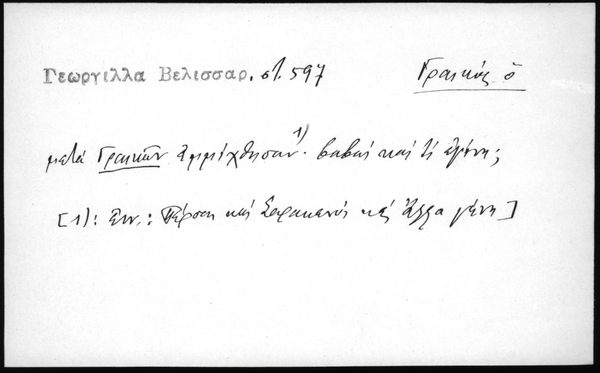 Γεωργιλλα Βελισσαρ. στ. 597 Γραικός ὁ
μετὰ Γραικῶν ἐσμίχθησαν 1) · βαβαί καὶ τί ἐγένη;
[1): ἐνν.: Πέρσαι καὶ Σαρακηνοὶ καὶ ἄλλα γένη]